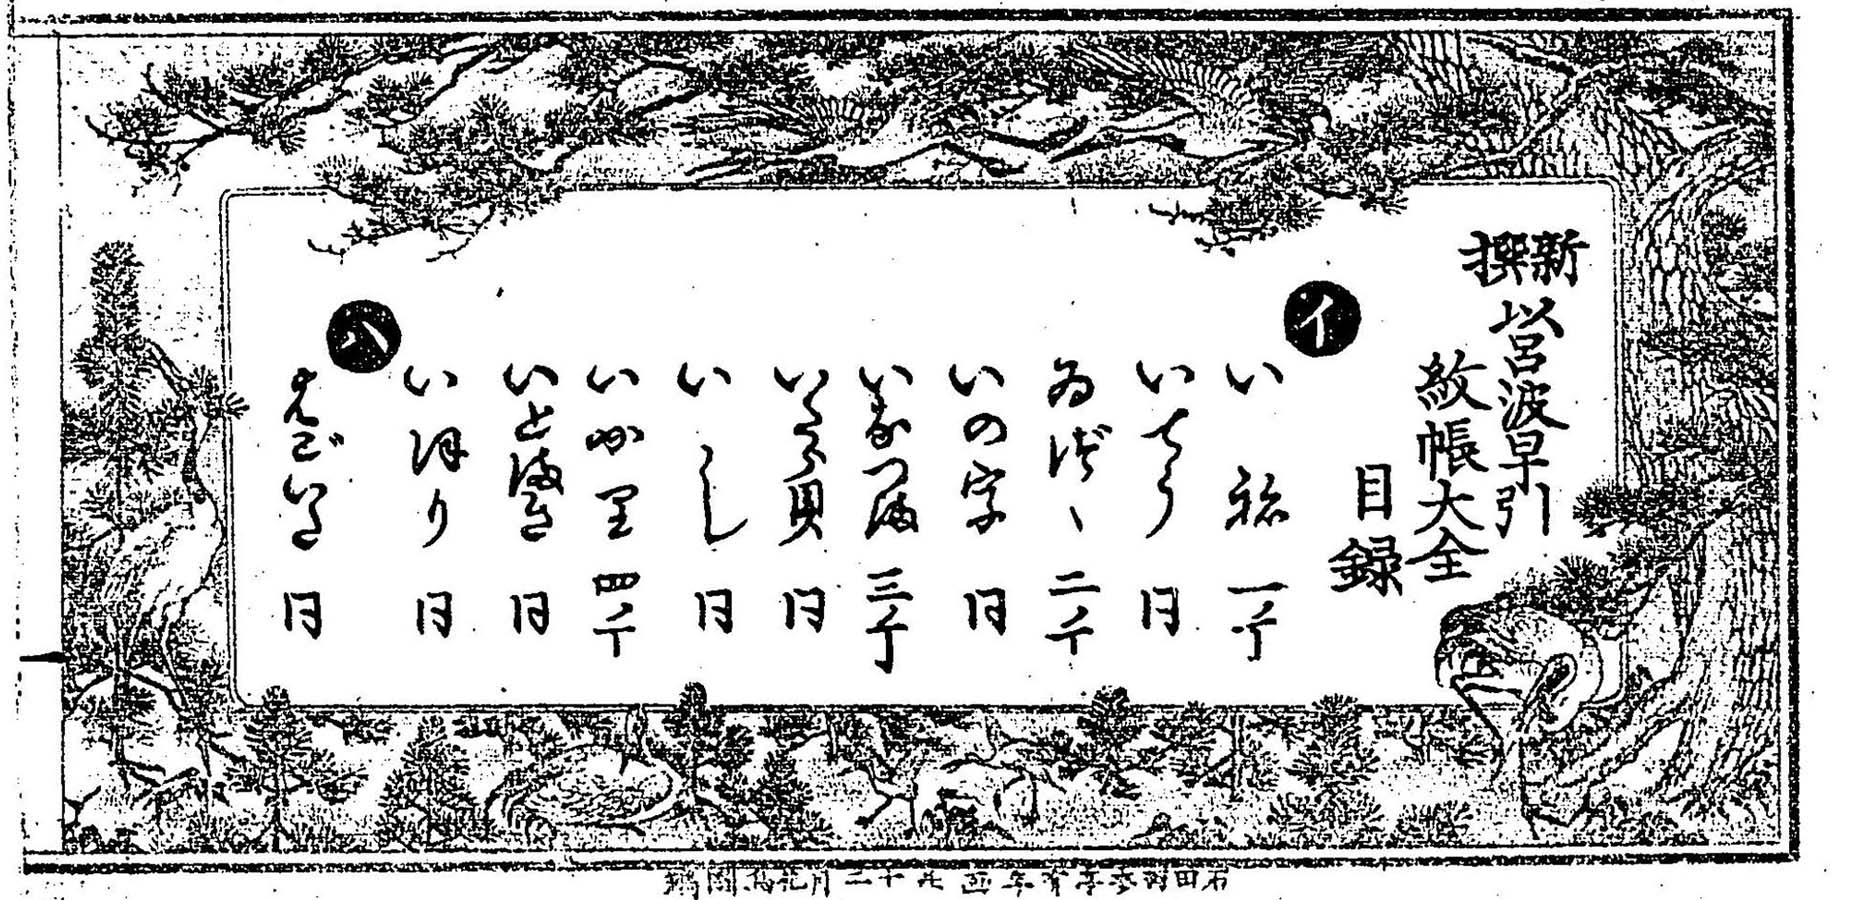 新撰 以呂波早引
紋帳大全
目録
イ
いね 一丁
いてう 同
ゐづゝ 二丁
いの字 同
いなづま 三丁
いたら貝 同
いし 同
いかり 四丁
いとまき 同
いほり 同
ハ
はごいた 同